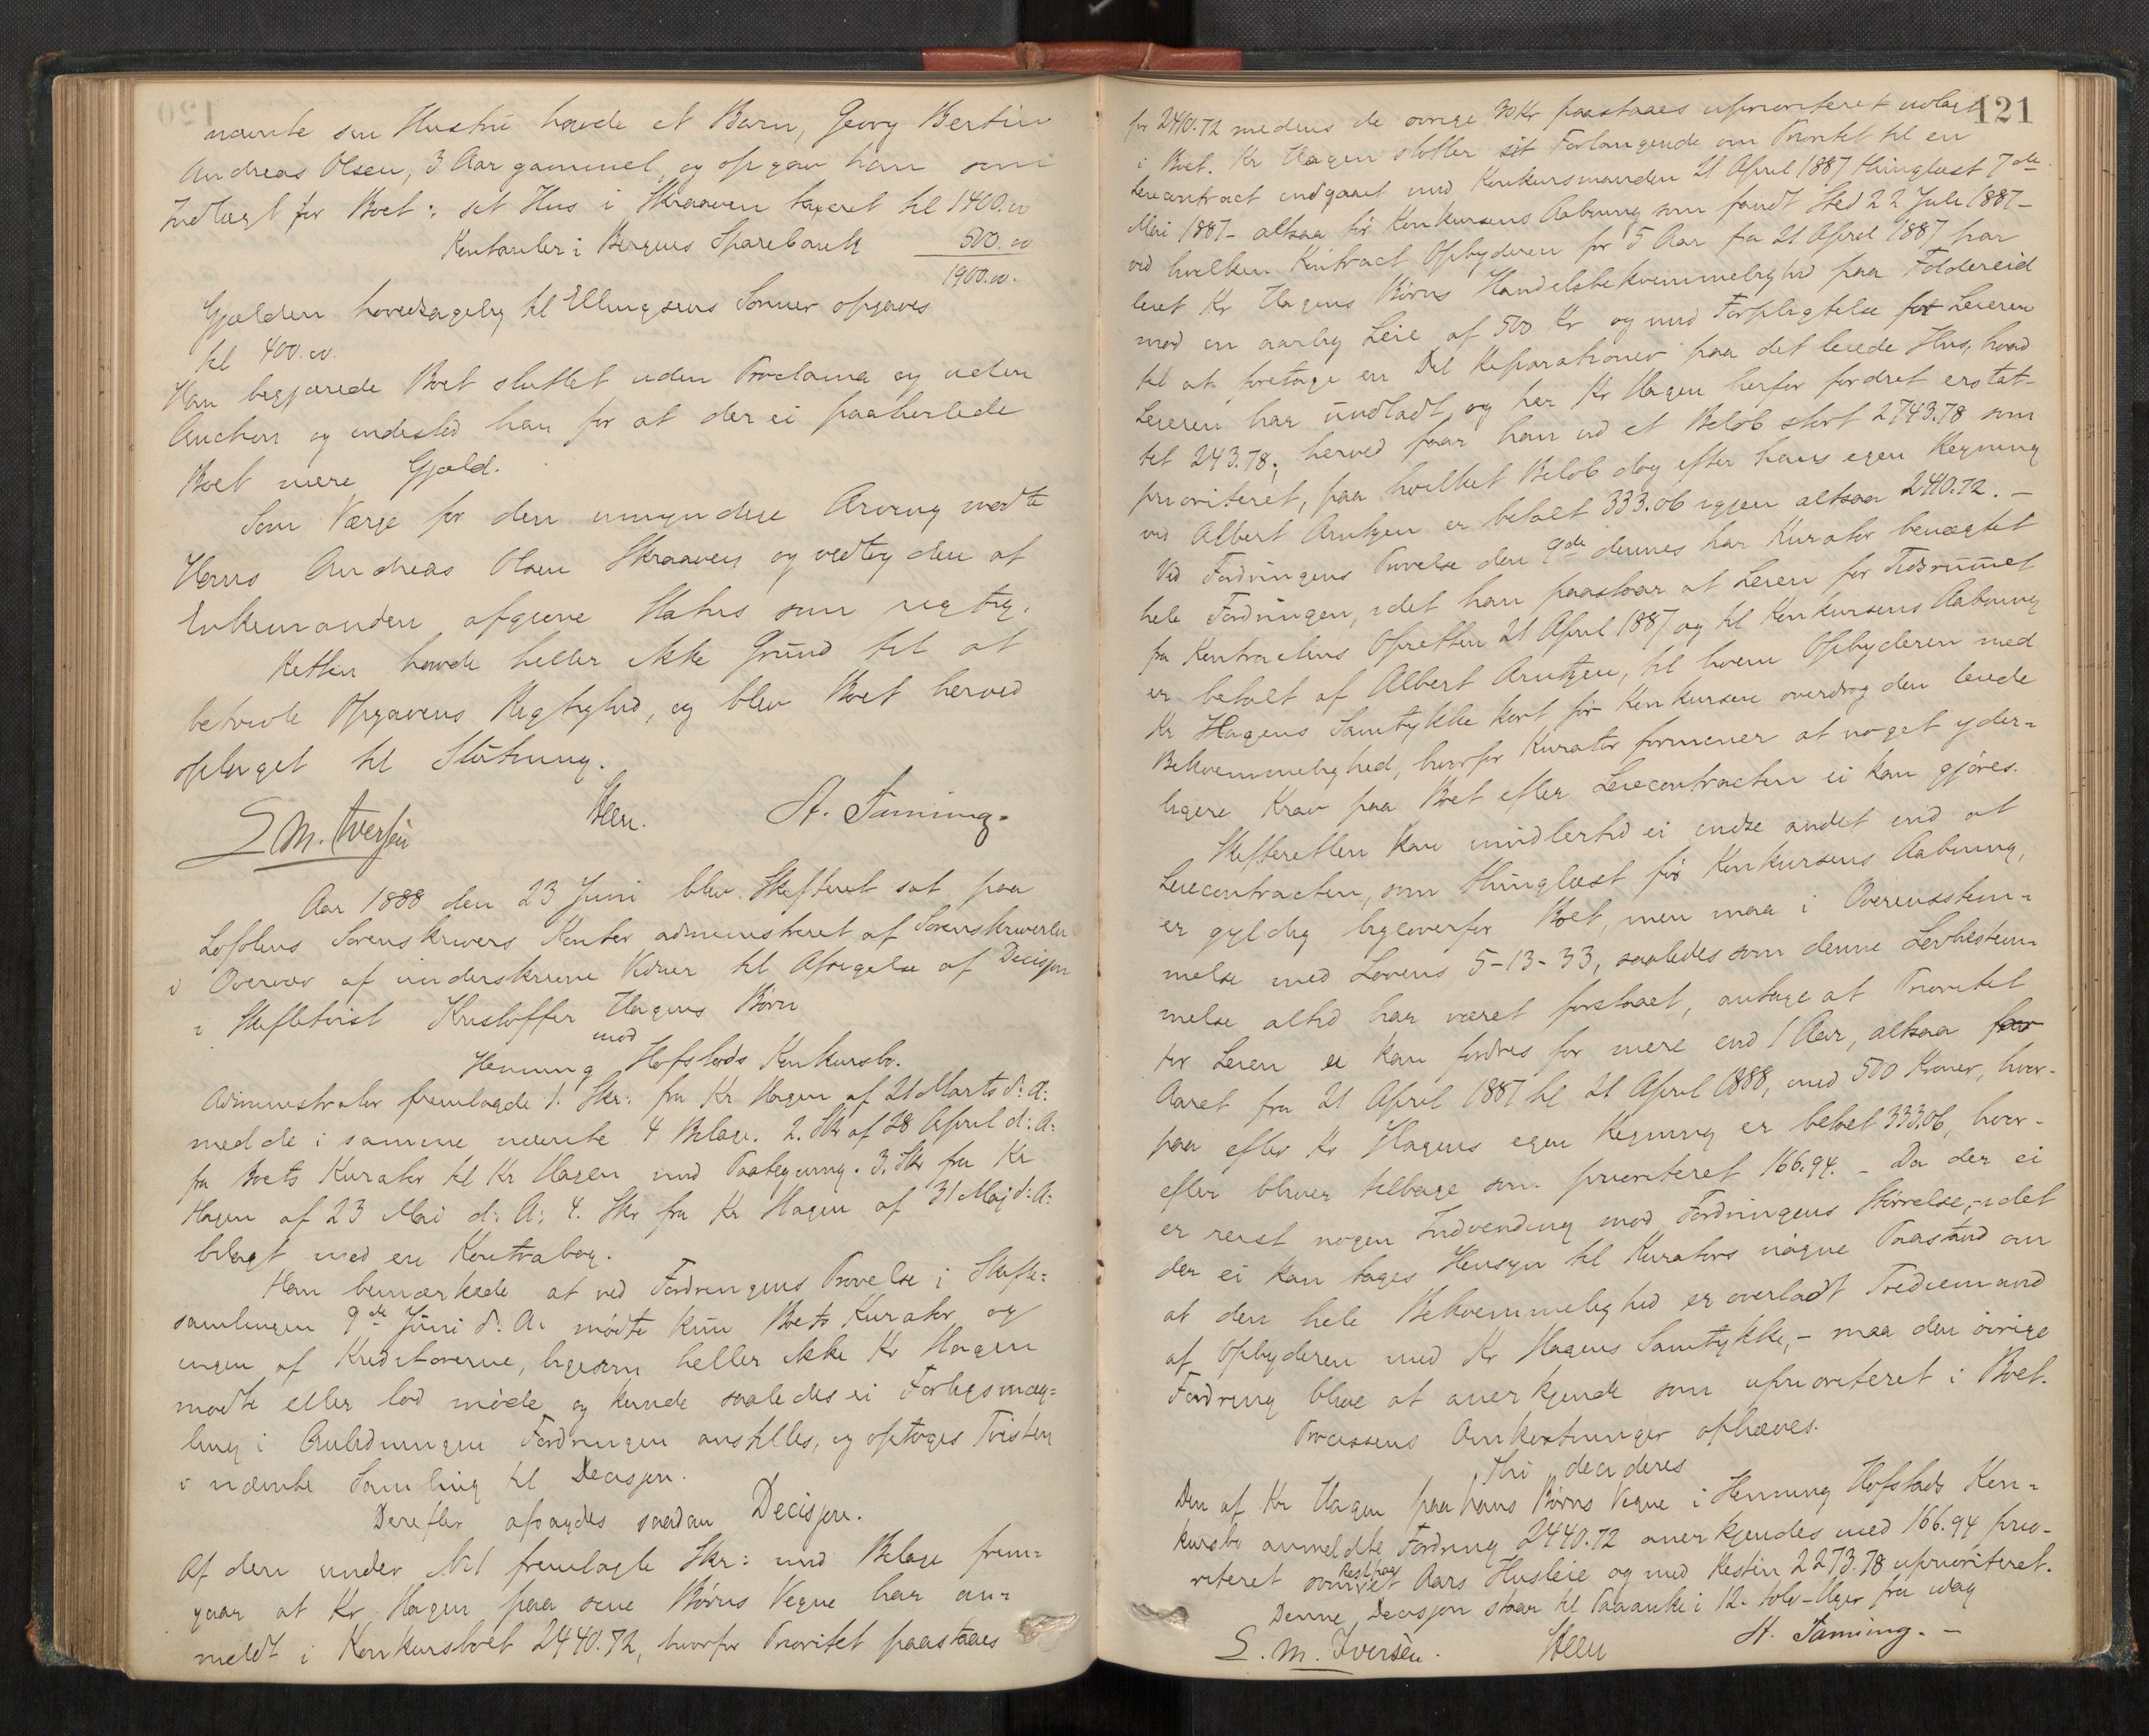 nævnte sin Hustru havde et Barn, Georg Bertin
Andreas Olsen, 3 Aar gammel, og opgav han som
Indtægt for Boet: set Hus i Skraaven taxeret til 1400.00
Kontanter i Bergens Sparebank 500.00
1900.00.
Gjælden hovedsagelig til Ellingsens Sønner opgaves
til 400.00.
Han begjærede Boet sluttet uden Proclama og uden
Auction og indestod han for at der ei paaheviede
Boet mere Gjæld.
Som Værge for den umyndige Arving mødte
Hans Andreas Olsen Skraaven og vedtog den af
Enkemanden afgivne Status som rigtig.
Retten havde heller ikke Grund til at
betvivle Opgavens Rigtighed, og blev Boet herved
optaget til Slutning.
S. M. Iversen Steen. A. Taming.
Aar 1888 den 23 Juni blev Skifteret sat paa
Lofotens Sorenskrivers Kontor administreret af Sorenskriveren
i Overvær af underskrevne Vidner til Afsigelse af Decisjon
i Skiftetvist Kristoffer Hagens Børn
mod
Henning Hofstads Konkursbo.
Administrator fremlagde 1. Skr: fra Kr Hagen af 21 Marts d: A:
med de i samme nævnte 4 Bilage. 2. Skr af 28 April d: A:
fra Boets Kurator til Kr Hagen med Paategning. 3. Skr fra Kr
Hagen af 23 Mai d: A: 4. Skr fra Kr Hagen af 31 Maj d: A:
bilagt med en Kontrabog.
Han bemærkede at ved Fordringens Prøvelse i Skifte=
samlingen 9de Juni d: A: mødte kun Boets Kurator og
ingen af Kreditorerne, ligesom heller ikke Kr Hagen
mødte eller lod møde og kunde saaledes ei Forligsmæg=
ling i Anledningen Fordringen anstilles, og optoges Tvisten
i nævnte Samling til Decisjon.
Derefter afsagdes saadan Decisjon.
Af den under No 1 fremlagte Skr: med Bilage frem=
gaar at Kr Hagen paa sine Børns Vegne har an=
meldt i Konkursboet 2440.72, hvorfor Prioritet paastaaes
121
for 2410.72 medens de øvrige 30 Kr paastaaes uprioriteret udlagt
i Boet. Kr Hagen støtter sit Forlangende om Prioritet til en
Leiecontract indgaaet med Konkursmanden 21 April 1887 thinglæst 7de
Mai 1887 – altsaa før Konkursens Aabning som fandt Sted 22 Juli 1887 –
ved hvilken Kontract Opbyderen for 5 Aar fra 21 April 1887 har
leiet Kr Hagens Børns Handelsbekvemmelighed paa Foldereid
mod en aarlig Leie af 500 Kr og med Forpligtelse for Leieren
til at foretage en Del Reparationer paa det leiede Hus, hvad
Leieren har undladt, og har Kr Hagen herfor fordret erstat-
tet 243.78; herved faar han ud et Beløb stort 2743.78 som
prioriteret, paa hvilket Beløb dog efter hans egen Regning
ved Albert Arntzen er betalt 333.06 igjen altsaa 2410.72. –
Ved Fordringens Prøvelse den 9de dennes har Kurator benægtet
hele Fordringen, idet han paastaar at Leien for Tidsrummet
fra Kontractens Oprettes 21 April 1887 og til Konkursens Aabning
er betalt af Albert Arntzen, til hvem Opbyderen med
Kr Hagens Samtykke kort før Konkursen overdrog den leiede
Bekvemmelighed, hvorfor Kurator formener at noget yder=
ligere Krav paa Boet efter Leiecontracten ei kan gjøres.
Skifteretten kan imidlertid ei indse andet end at
Leiecontracten, som thinglæst før Konkursens Aabning,
er gyldig ligeoverfor Boet, men maa i Overensstem=
melse med Lovens 5-13-33, saaledes som denne Lovbestem-
melse altid har været forstaaet, antage at Prioritet
for Leien ei kan fordres for mere end 1 Aar, altsaa for
Aaret fra 21 April 1887 til 21 April 1888, med 500 Kroner, hvor-
paa efter Kr Hagens egen Regning er betalt 333.06, hvor-
efter bliver tilbage som prioriteret 166.94. – Da der ei
er reist nogen Indvending mod Fordringens Størrelse, – idet
der ei kan tages Hensyn til Kurators Paastand om
at den hele Bekvemmelighed er overladt Trediemand
af Opbyderen med Kr Hagens Samtykke, – maa den øvrige
Fordring blive at anerkjende som uprioriteret i Boet.
Processens Omkostninger ophæves.
Thi decideres
Den af Kr Hagen paa hans Børns Vegne i Henning Hofstads Kon=
kursbo anmeldte Fordring 2440.72 anerkjendes med 166.94 prio-
riteret som Rest paa et Aars Husleie og med Resten 2273.78 uprioriteret.
Denne Decisjon staar til Paaanke i 12 – tolv – Uger fra idag
S. M. Iversen. Steen A. Taming. –